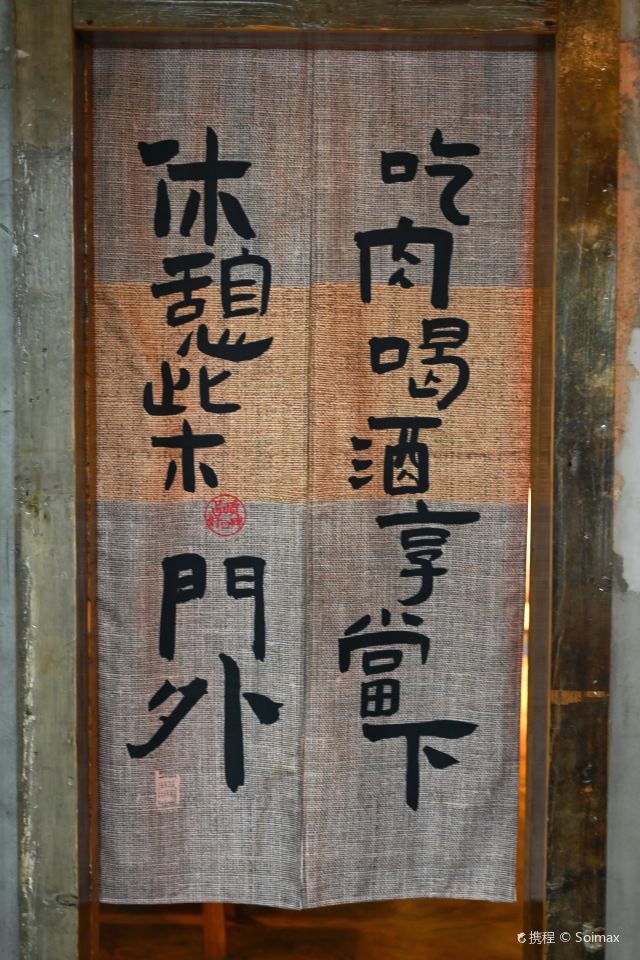 吃肉喝酒享當下
休憩柴門外
携程 © Soimax